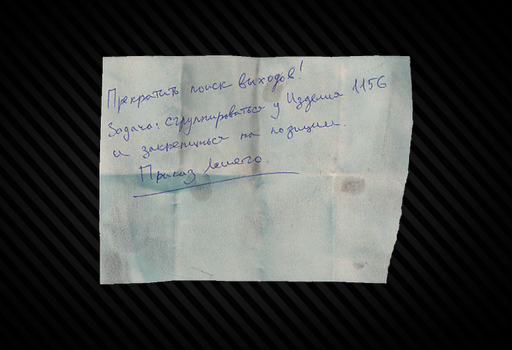 Прекратить поиск выходов!
Задача: сгруппироваться у Изделия 1156
и закрепиться на позиции.
Приказ Лешего.